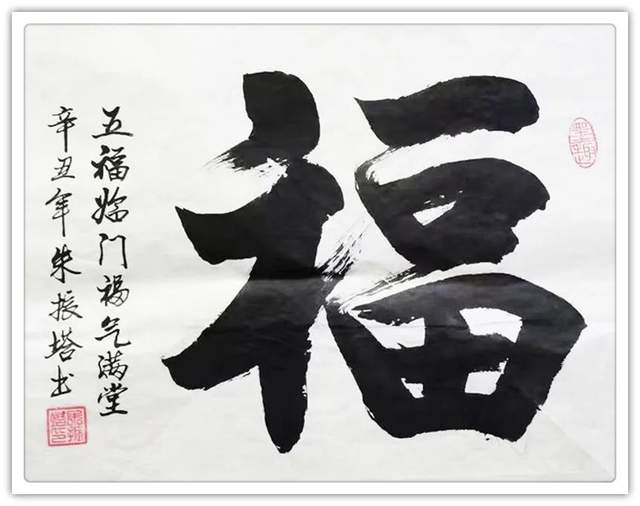 福
五福临门福气满堂
辛丑年朱振塔书